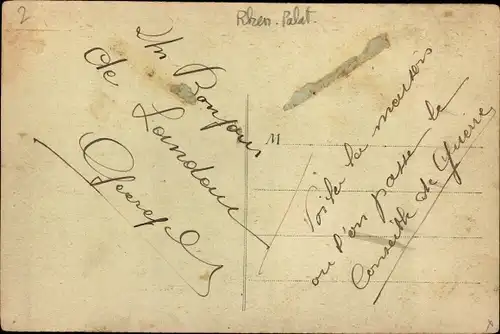 2
Rhein-Palat.
Un Bonjour
de Landau
M
Voila la maison
ou l'on passe le
Conseille de Guerre